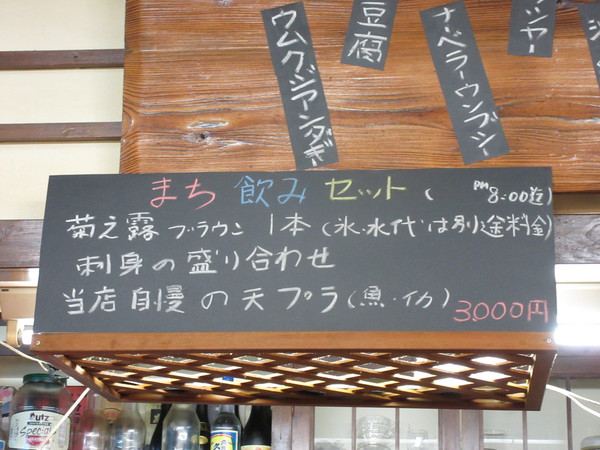 ウムクジアンダぎ
豆腐
ナーベラーウンブシー
まち 飲み セット ( PM 8:00迄)
菊之露 ブラウン 1本 (氷・水代は別途料金)
刺身の盛り合わせ
当店自慢の天プラ (魚・イカ) 3,000円
utz
Special